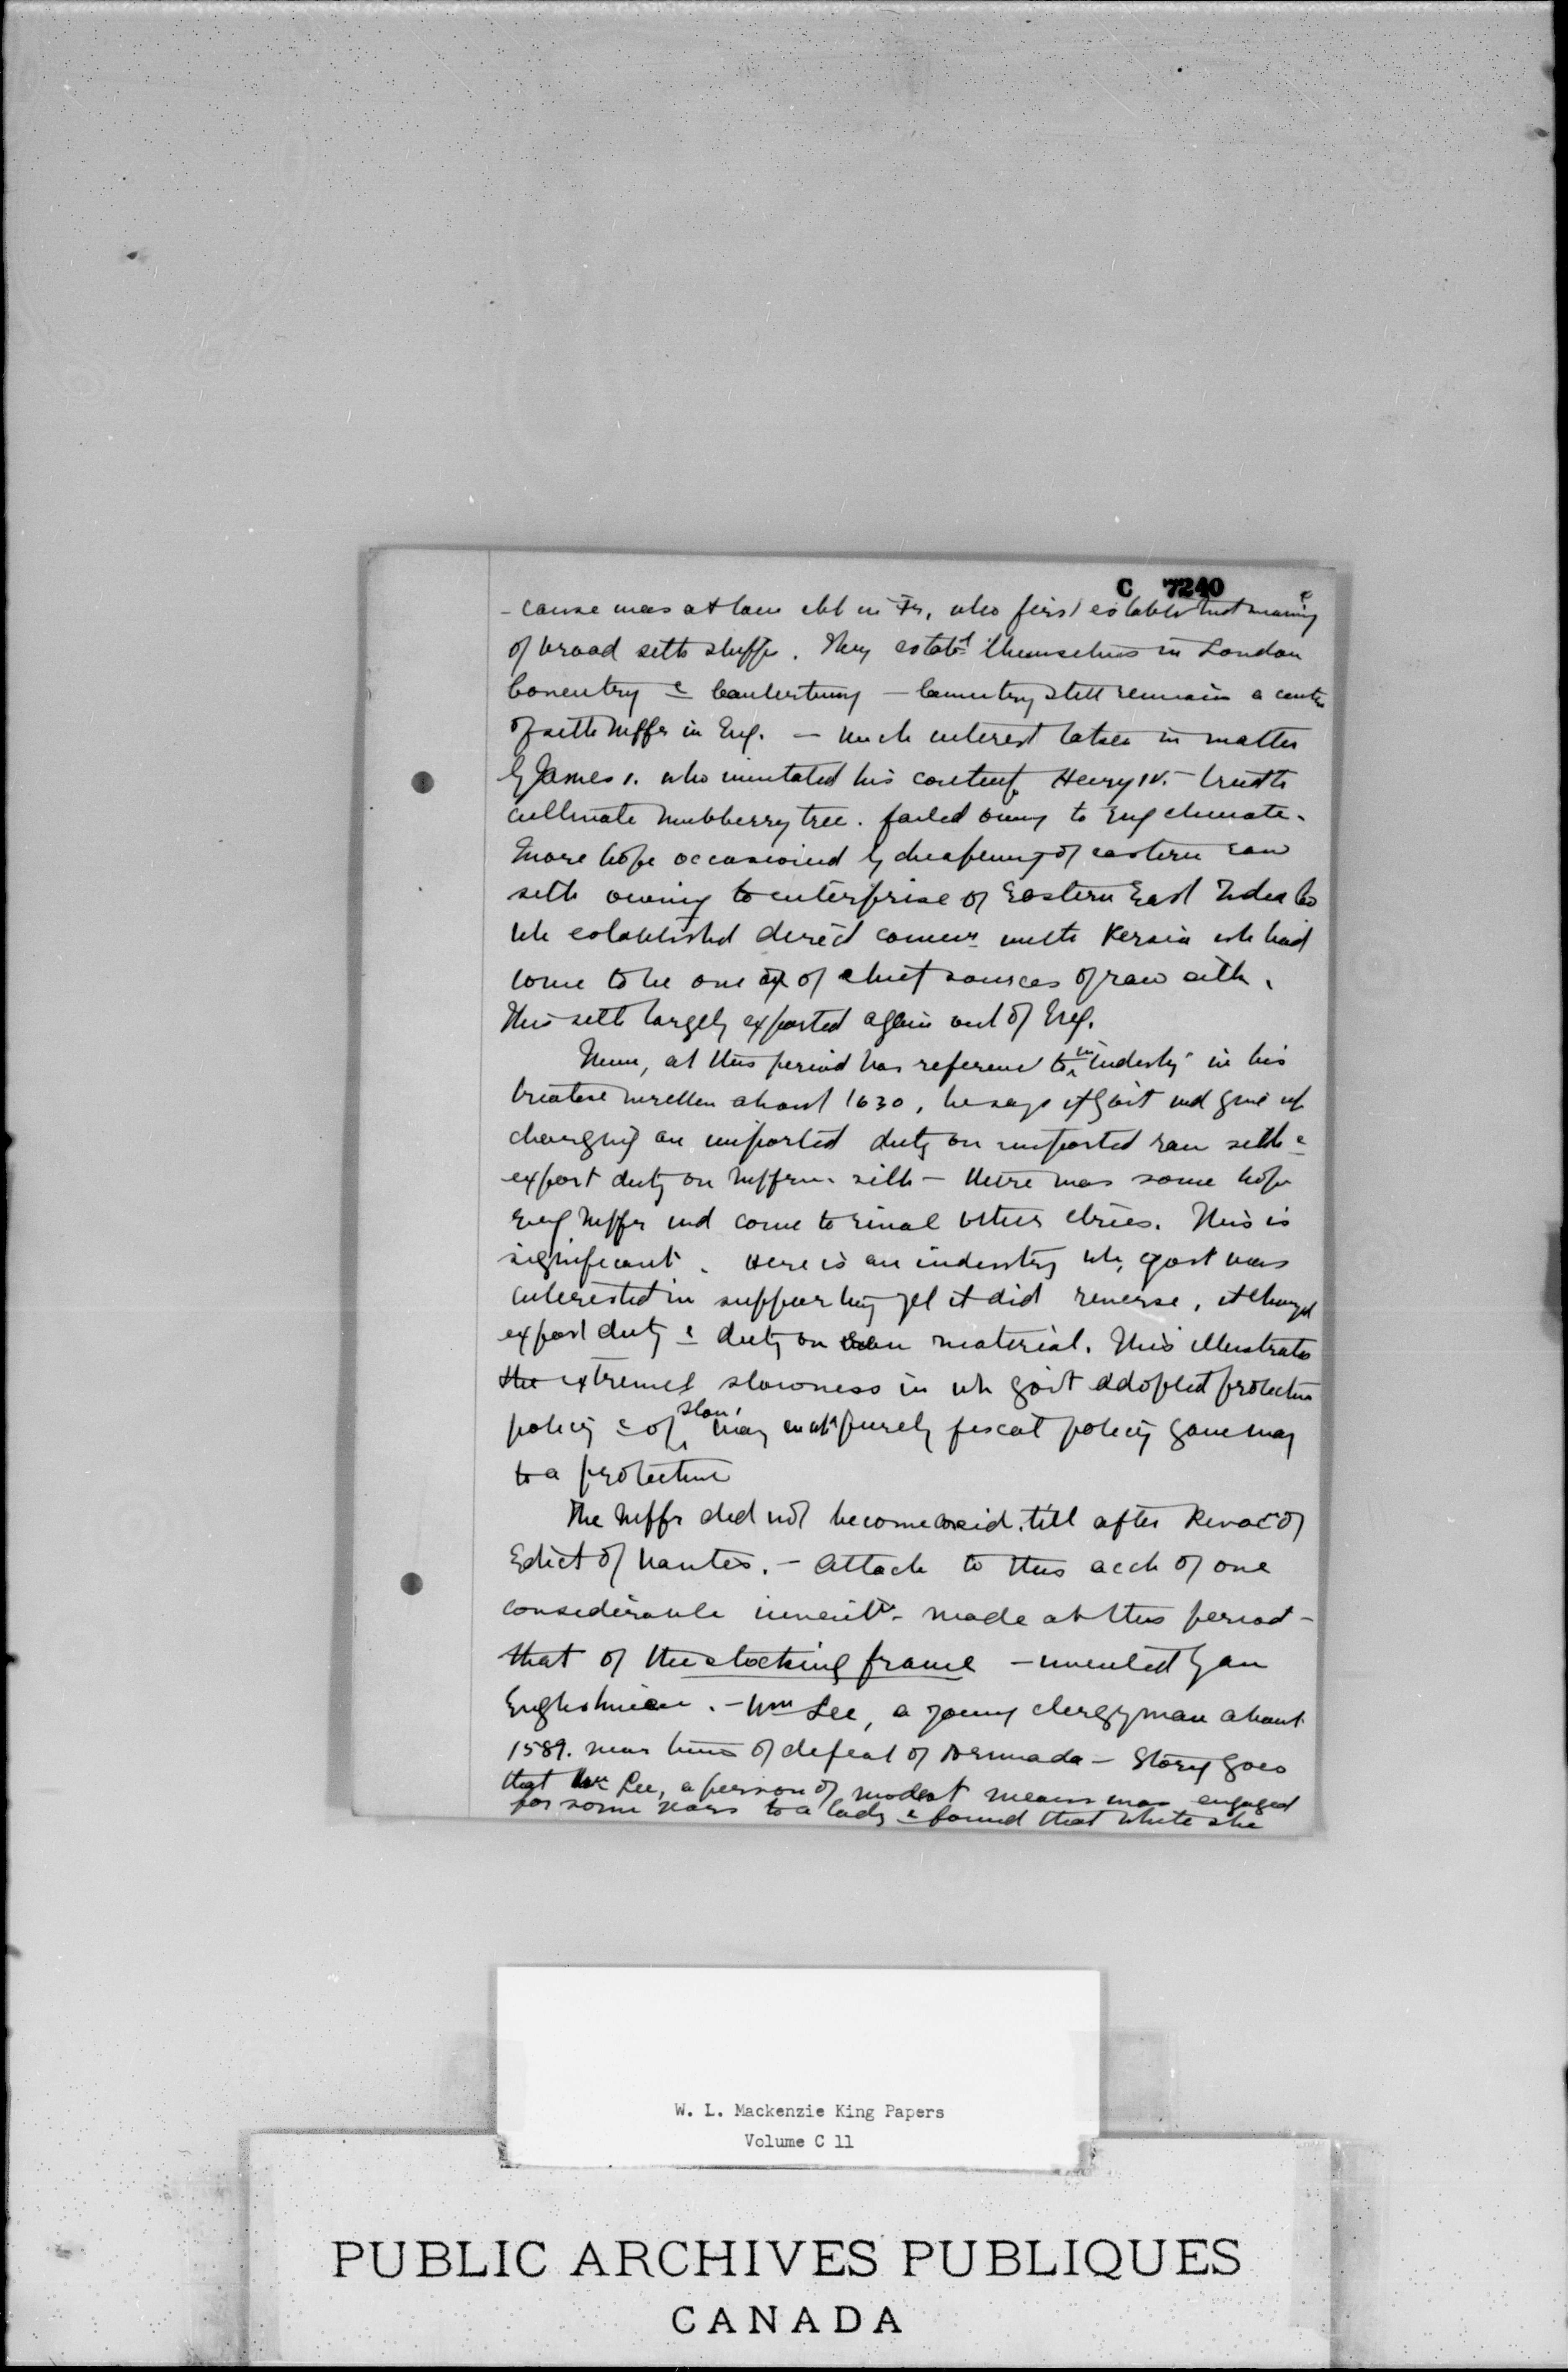 C 7240
- cause was at low ebb in Fr, who first establishd weaving
of broad silk stuffs. They estabd themselves in London
Coventry & Canterbury - Coventry still remain a centre
of silk mffr in Eng. - much interest taken in matter
by James 1. who imitated his contemp Henry IV. - tried to
cultivate mulberry tree. failed owing to Eng climate.
more hope occasioned by cheapening of eastern raw
silk owing to enterprise of Eastern East India Co
wh established direct comer with Persia wh had
come to be one of of chief sources of raw silk.
This silk largely exported again out of Eng.
Mun, at this period has reference to this industry in his
treatise written about 1630, he says if govt wd give up
charging an imported duty on imported raw silk &
export duty on mffrd silk - there was some hope
Eng mffr wd come to rival other ctries. This is
significant. Here is an industry wh govt was
interested in supporting yet it did reverse, it charged
export duty & duty on raw material. This illustrates
the extreme slowness in wh govt adopted protective
policy & of slow way in wh purely fiscal policy gave way
to a protective
The mffr did not become consid. till after Revocn of
Edict of Nantes. - Attach to this acct of one
considerable inventn - made at this period -
that of the stocking frame - invented by an
Englishman. - Wm Lee, a young clergyman about
1589. near time of defeat of Armada - Story goes
that Wm Lee, a person of modest means was engaged
for some years to a lady & found that while she
W. L. Mackenzie King Papers
Volume C 11
PUBLIC ARCHIVES PUBLIQUES
CANADA